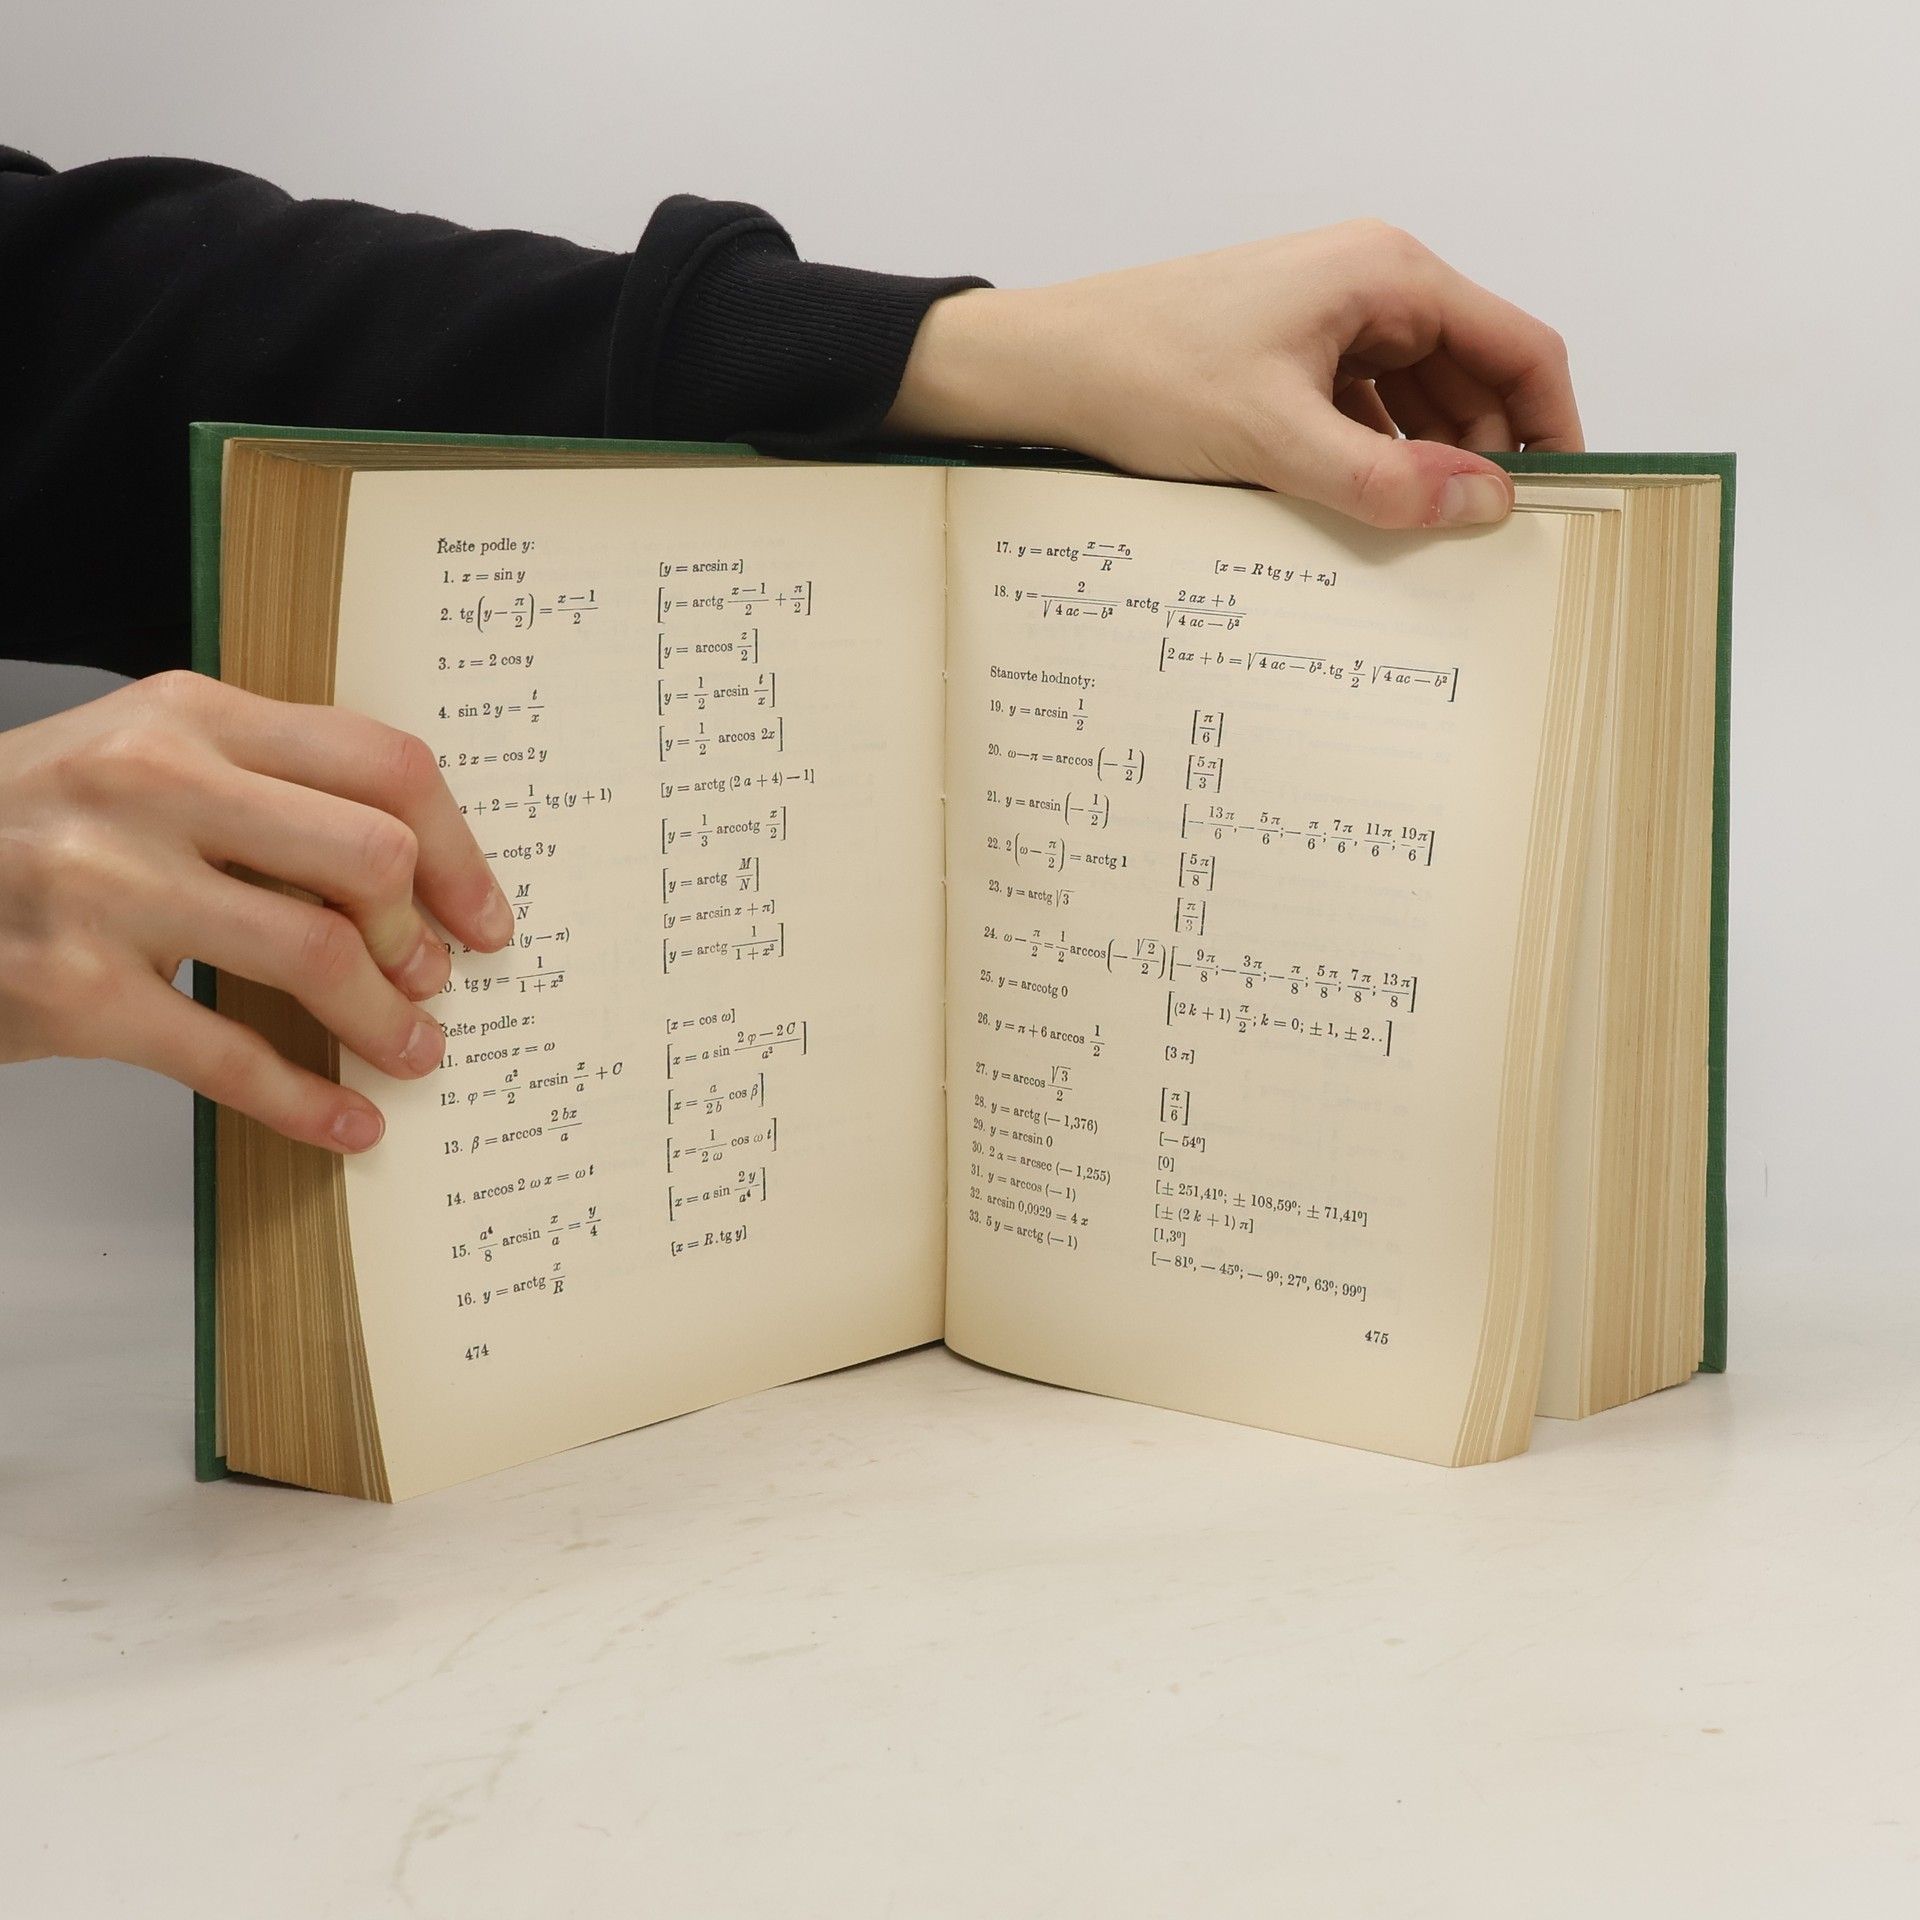 Řešte podle y:
1. x = sin y [y = arcsin x]
2. tg (y − π/2) = (x − 1)/2 [y = arctg (x − 1)/2 + π/2]
3. z = 2 cos y [y = arccos z/2]
4. sin 2 y = t/x [y = 1/2 arcsin t/x]
5. 2 x = cos 2 y [y = 1/2 arccos 2x]
a + 2 = 1/2 tg (y + 1) [y = arctg (2 a + 4) − 1]
= cotg 3 y [y = 1/3 arccotg x/2]
M/N [y = arctg M/N]
(y − π) [y = arcsin x + π]
0. tg y = 1/(1 + x²) [y = arctg 1/(1 + x²)]
Řešte podle x:
11. arccos x = ω [x = cos ω]
12. φ = a²/2 arcsin x/a + C [x = a sin (2 φ − 2 C)/a²]
13. β = arccos 2 bx/a [x = a/2 b cos β]
14. arccos 2 ω x = ω t [x = 1/2 ω cos ω t]
15. a⁴/8 arcsin x/a = y/4 [x = a sin 2 y/a⁴]
16. y = arctg x/R [x = R.tg y]
474
17. y = arctg (x − x₀)/R [x = R tg y + x₀]
18. y = 2/√(4 ac − b²) arctg (2 ax + b)/√(4 ac − b²)
[2 ax + b = √(4 ac − b²).tg y/2 √(4 ac − b²)]
Stanovte hodnoty:
19. y = arcsin 1/2 [π/6]
20. ω − π = arccos (− 1/2) [5 π/3]
21. y = arcsin (− 1/2) [− 13 π/6, − 5 π/6; − π/6; 7 π/6, 11 π/6; 19 π/6]
22. 2 (ω − π/2) = arctg 1 [5 π/8]
23. y = arctg √3 [π/3]
24. ω − π/2 = 1/2 arccos (− √2/2) [− 9 π/8; − 3 π/8; − π/8; 5 π/8; 7 π/8; 13 π/8]
25. y = arccotg 0 [(2 k + 1) π/2; k = 0; ± 1, ± 2..]
26. y = π + 6 arccos 1/2 [3 π]
27. y = arccos √3/2 [π/6]
28. y = arctg (− 1,376) [− 54⁰]
29. y = arcsin 0 [0]
30. 2 α = arcsec (− 1,255) [± 251,41⁰; ± 108,59⁰; ± 71,41⁰]
31. y = arccos (− 1) [± (2 k + 1) π]
32. arcsin 0,0929 = 4 x [1,3⁰]
33. 5 y = arctg (− 1) [− 81⁰, − 45⁰; − 9⁰; 27⁰, 63⁰; 99⁰]
475